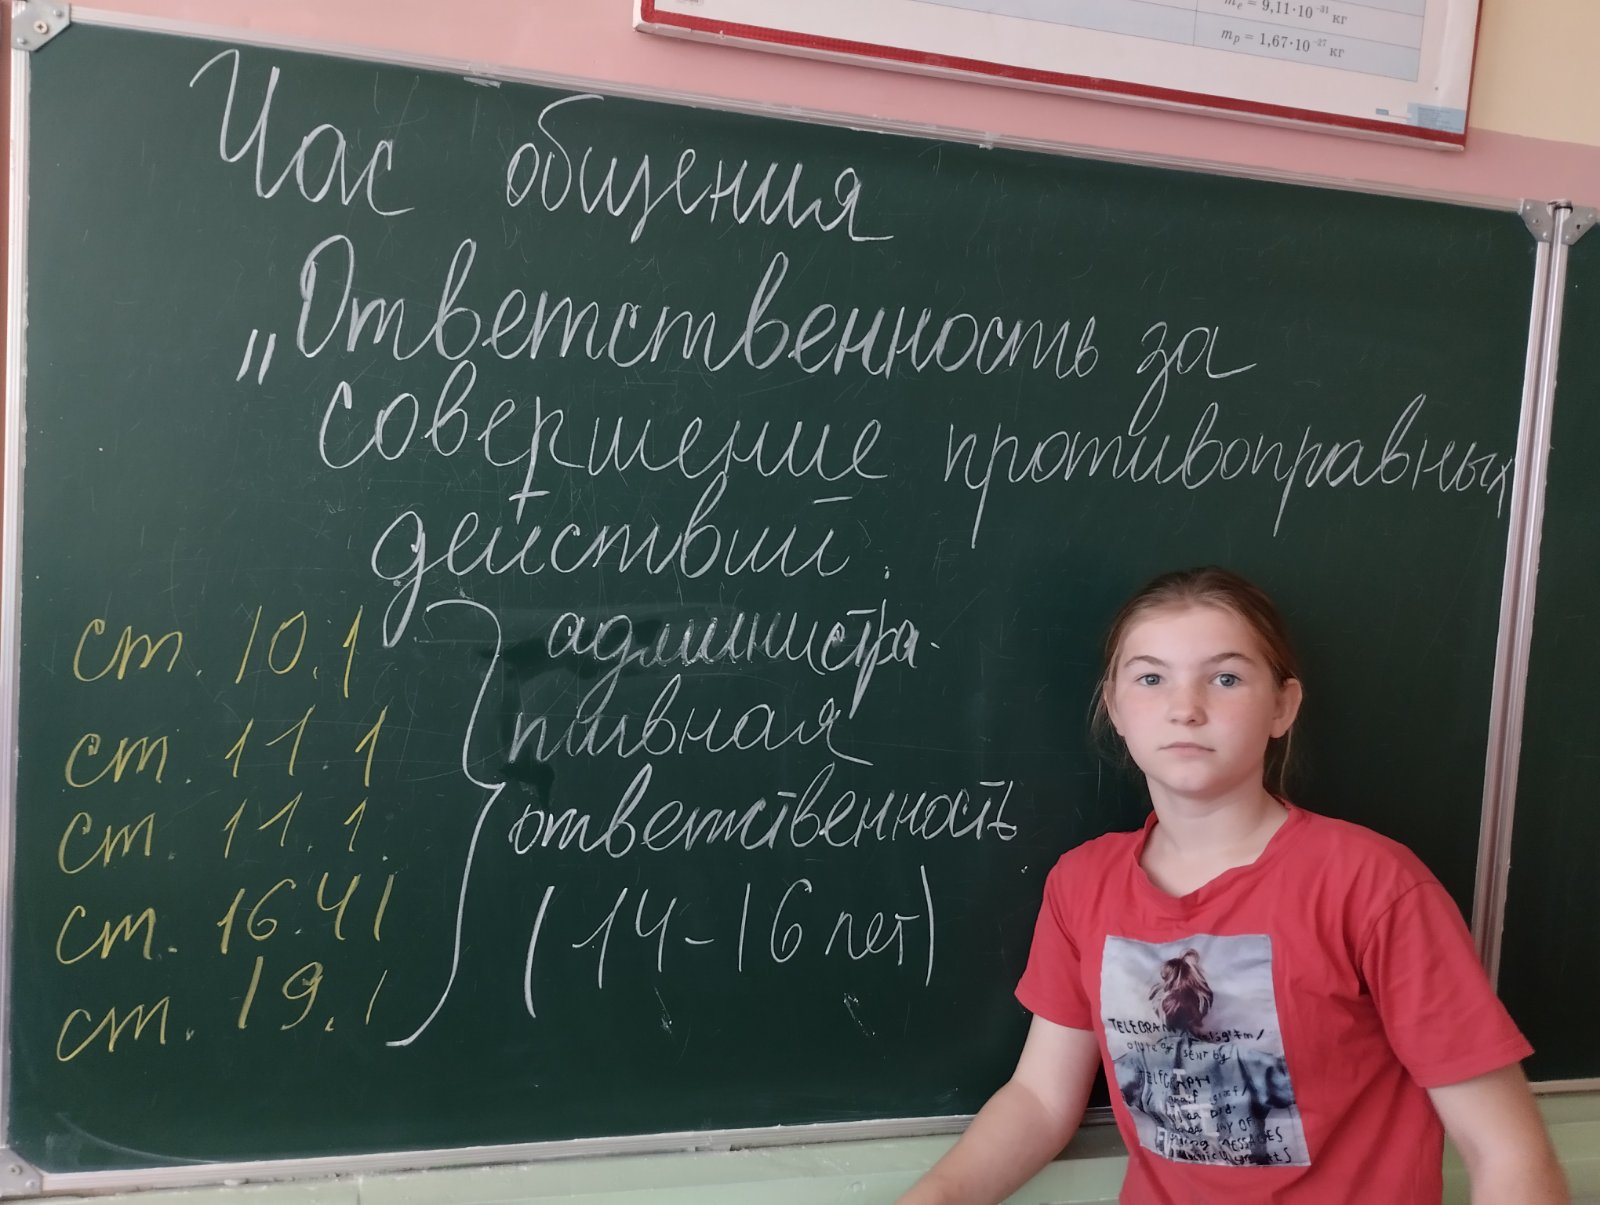 mₑ = 9,11·10⁻³¹ кг
mₚ = 1,67·10⁻²⁷ кг
Час общения
„Ответственность за
совершение противоправных
действий
ст. 10.1
ст. 11.1
ст. 11.1.
ст. 16.41
ст. 19.1
администра-
тивная
ответственность
(14-16 лет)
TELEGRAM
SENT by
TELEGRAPH
MESSAGES